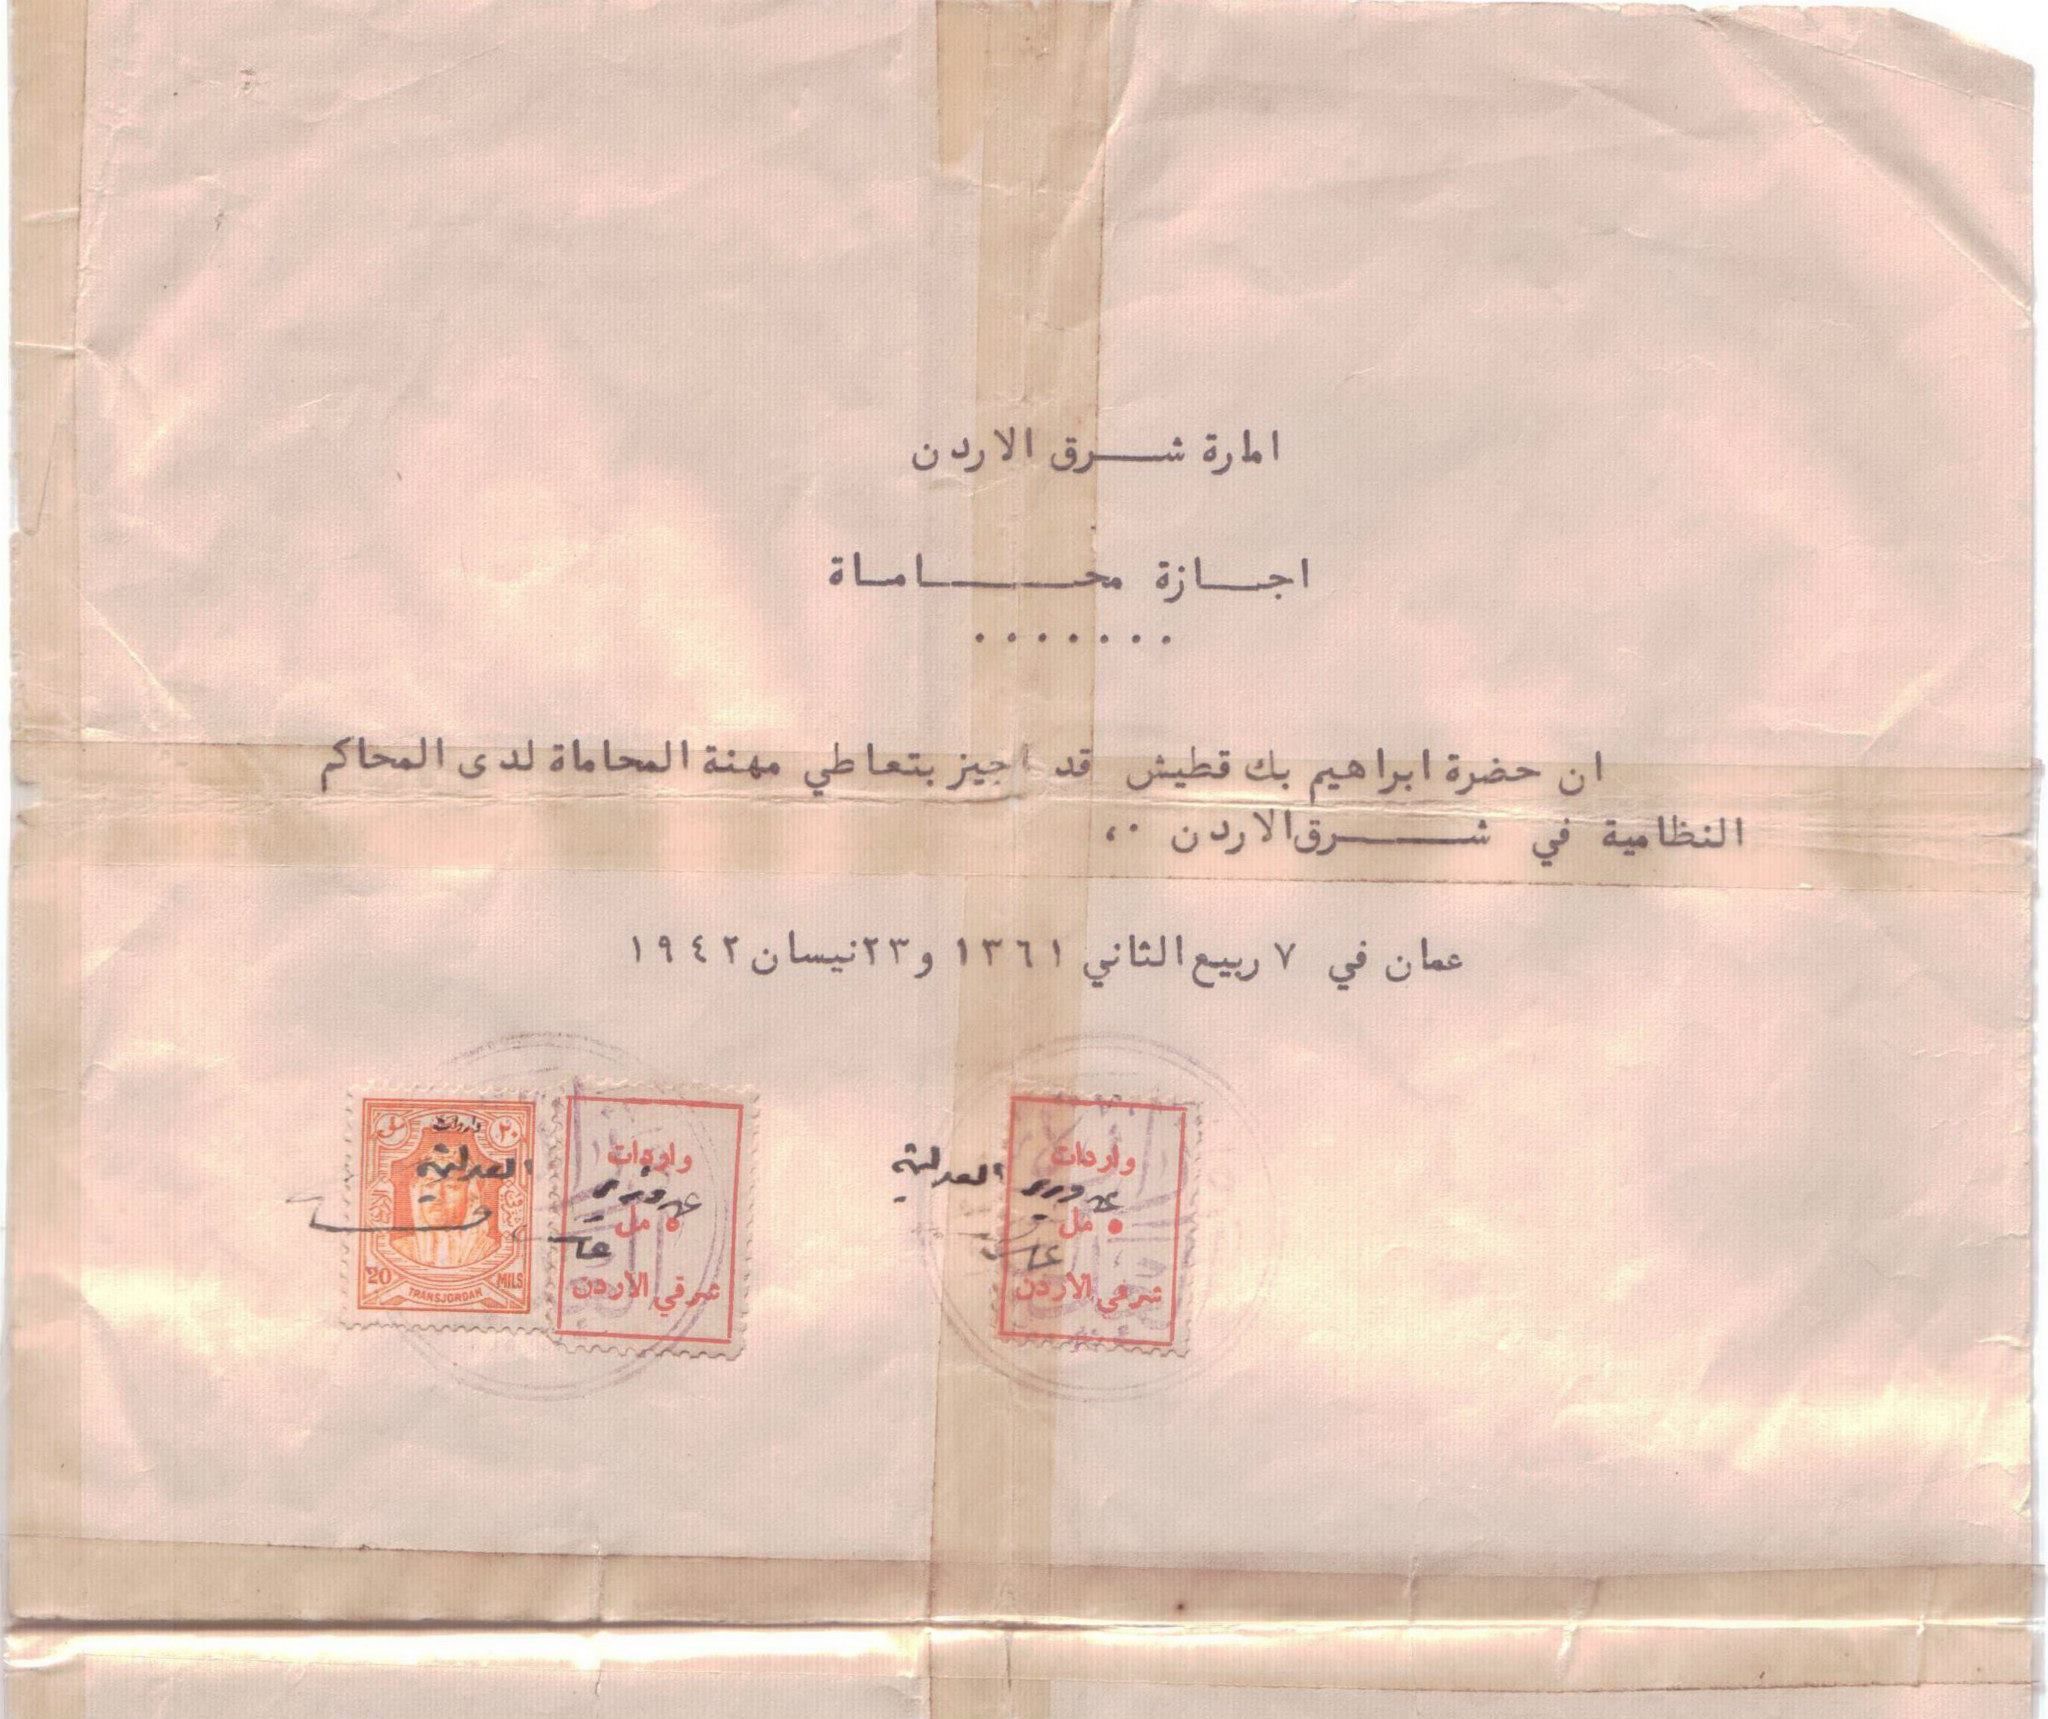 امارة شرق الاردن
اجازة محاماة
.......
ان حضرة ابراهيم بك قطيش قد اجيز بتعاطي مهنة المحاماة لدى المحاكم
النظامية في شرق الاردن ٠،
عمان في ٧ ربيع الثاني ١٣٦١ و٢٣نيسان ١٩٤٢
واردات
٢٠
العدلية
20 MILS
TRANSJORDAN
واردات
٥ مل
شرقي الاردن
واردات
العدلية
٥ مل
شرقي الاردن